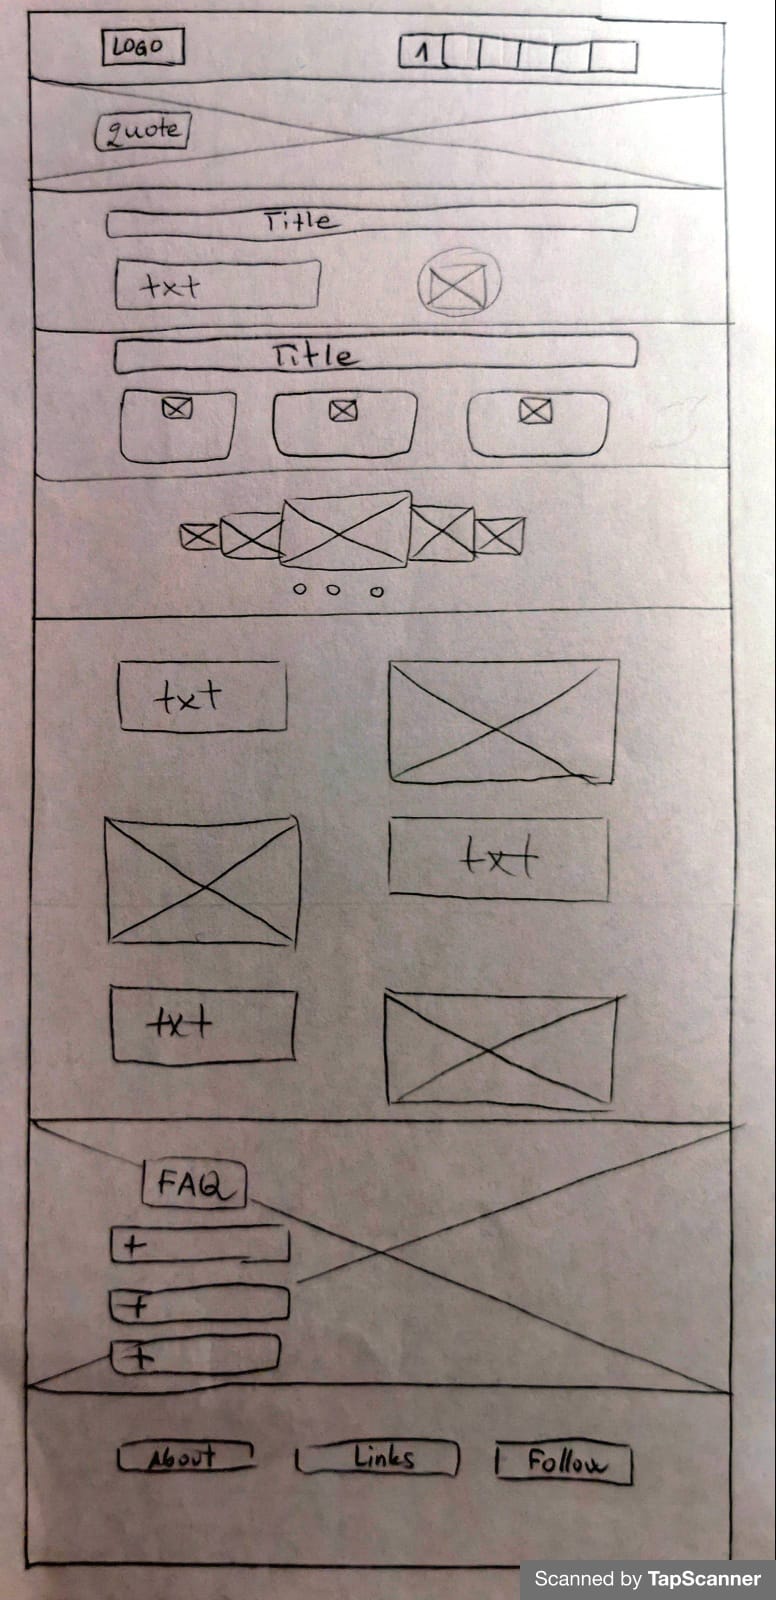 LOGO
1
quote
Title
txt
Title
txt
txt
txt
FAQ
+
+
+
About Links Follow
Scanned by TapScanner